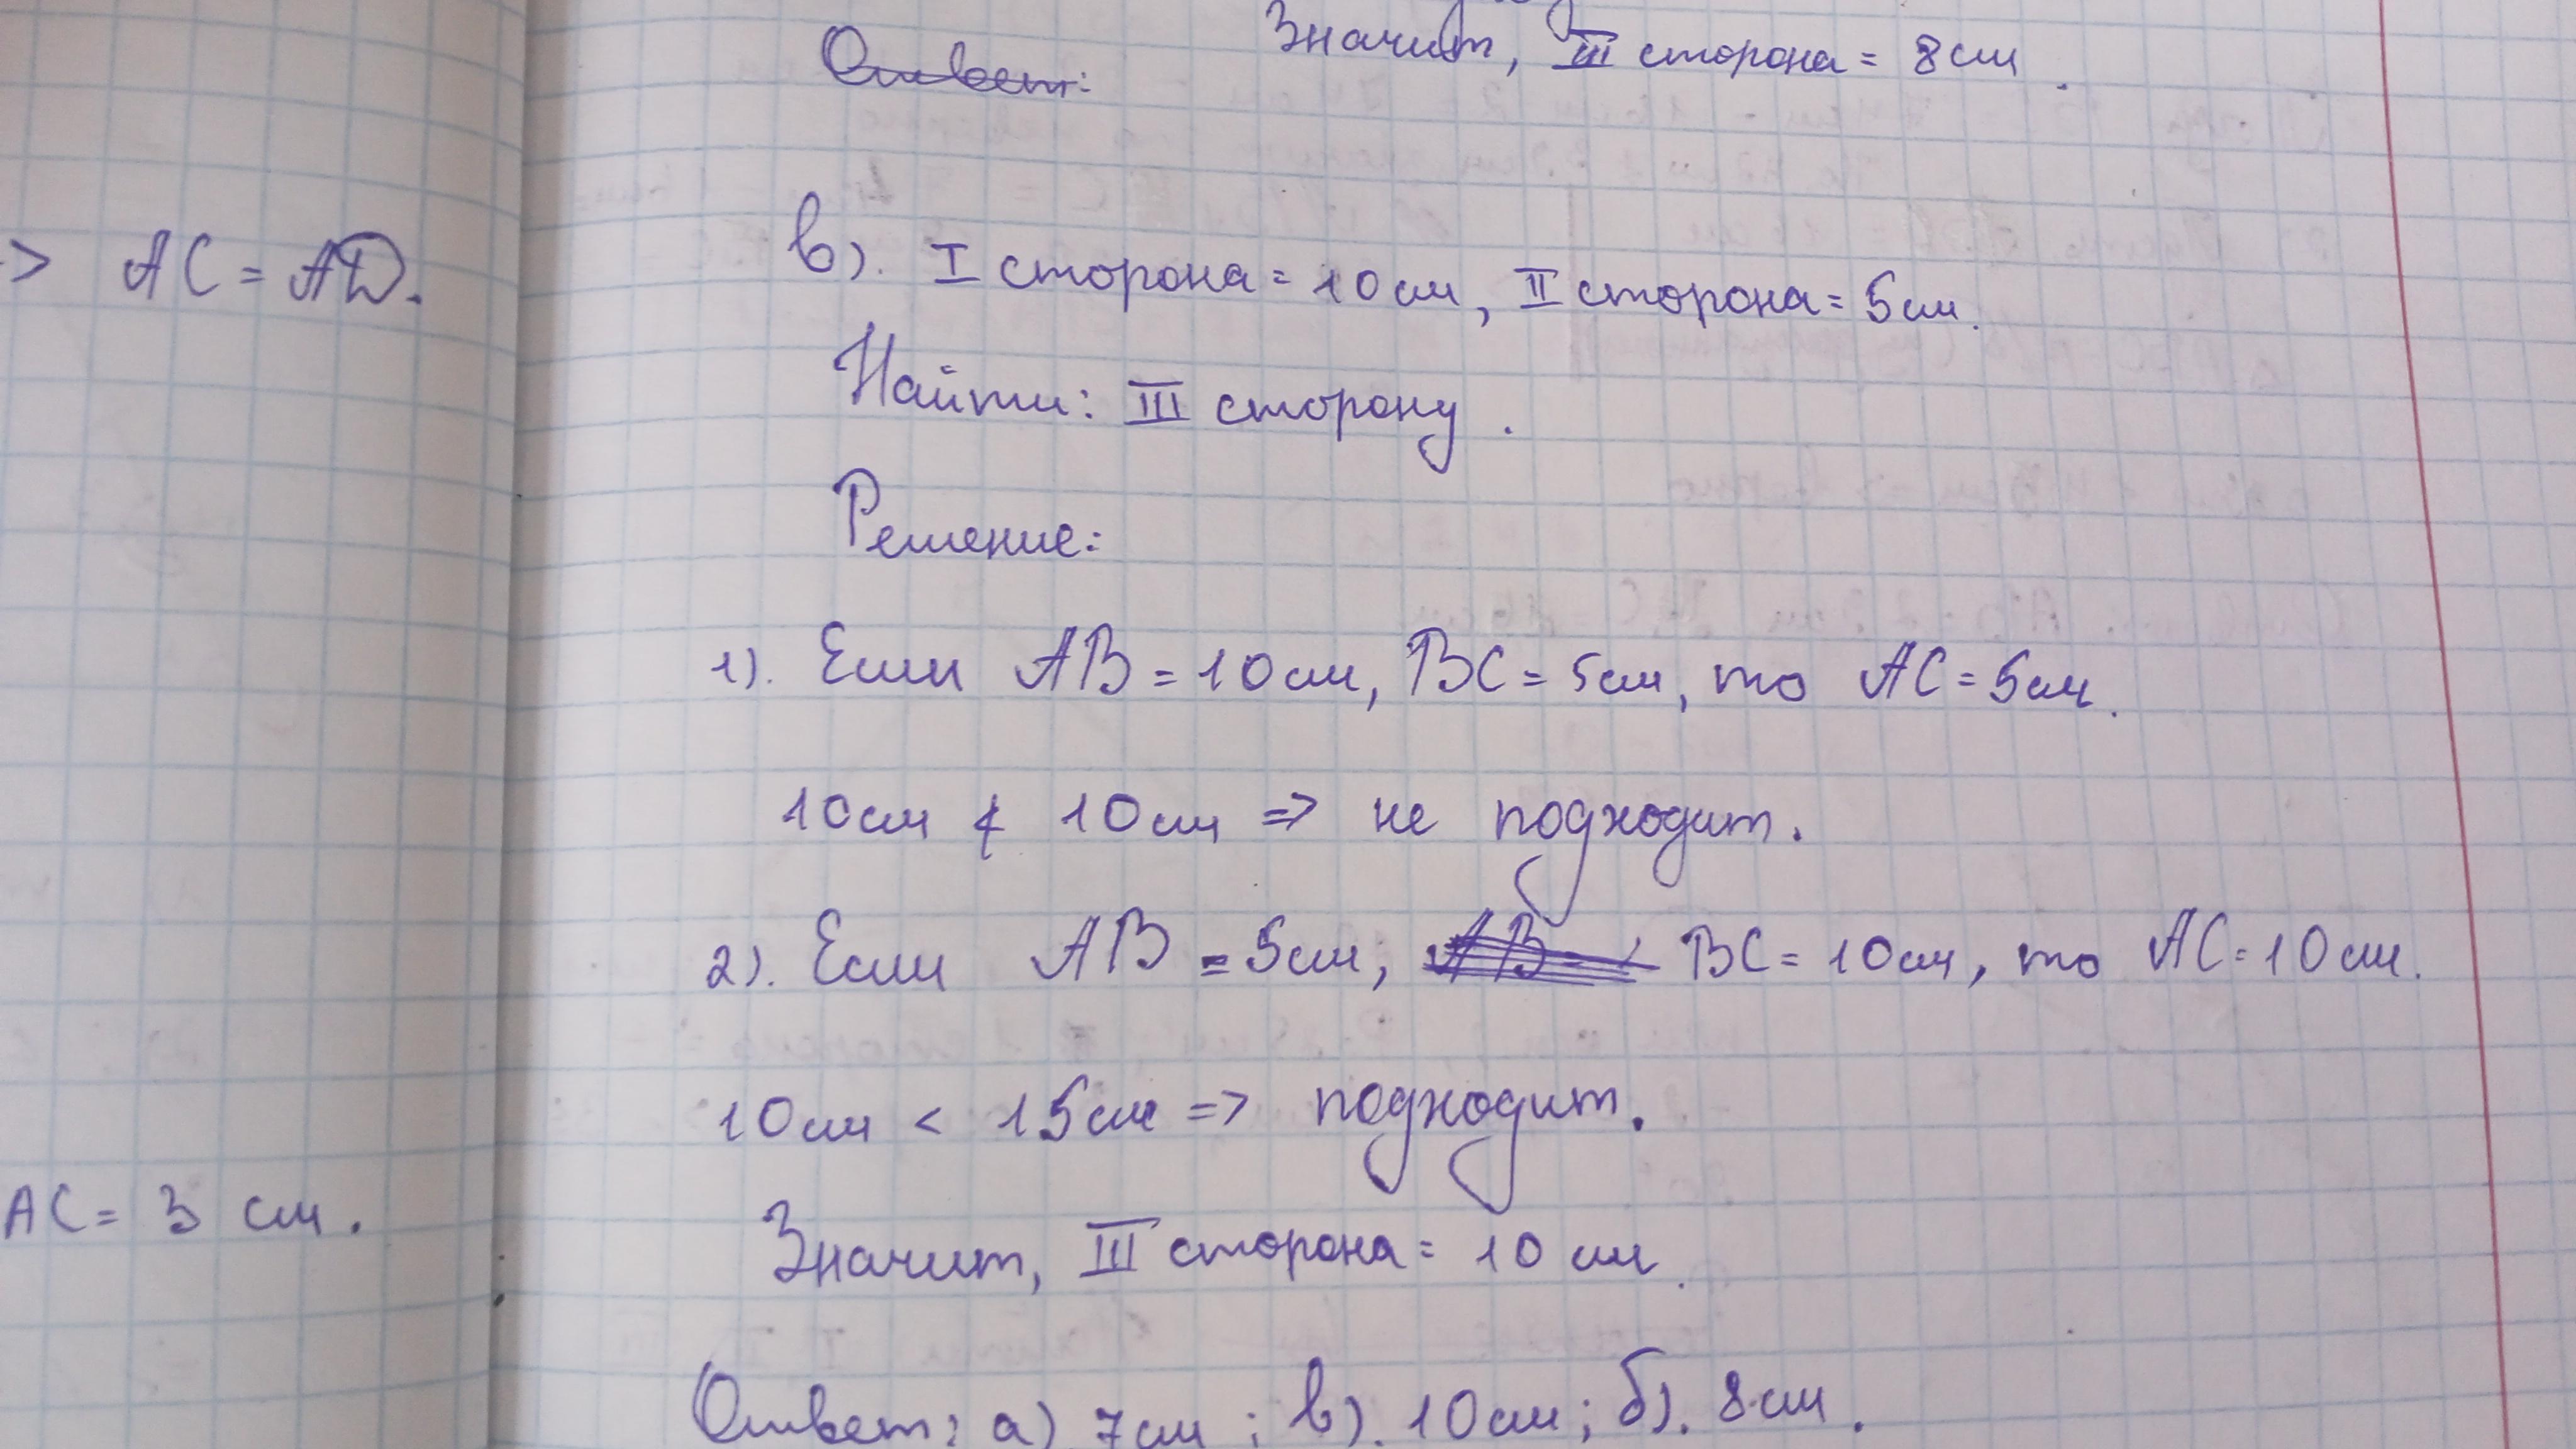 Значит, III сторона = 8 см.
Ответ:
=> AC = AD.
в). I сторона = 10 см, II сторона = 5 см.
Найти: III сторону.
Решение:
1). Если AB = 10 см, BC = 5 см, то AC = 5 см.
10 см ≮ 10 см => не подходит.
2). Если AB = 5 см; BC = 10 см, то AC = 10 см.
10 см < 15 см => подходит.
AC = 3 см.
Значит, III сторона = 10 см.
Ответ: а) 7 см; в). 10 см; б). 8 см.